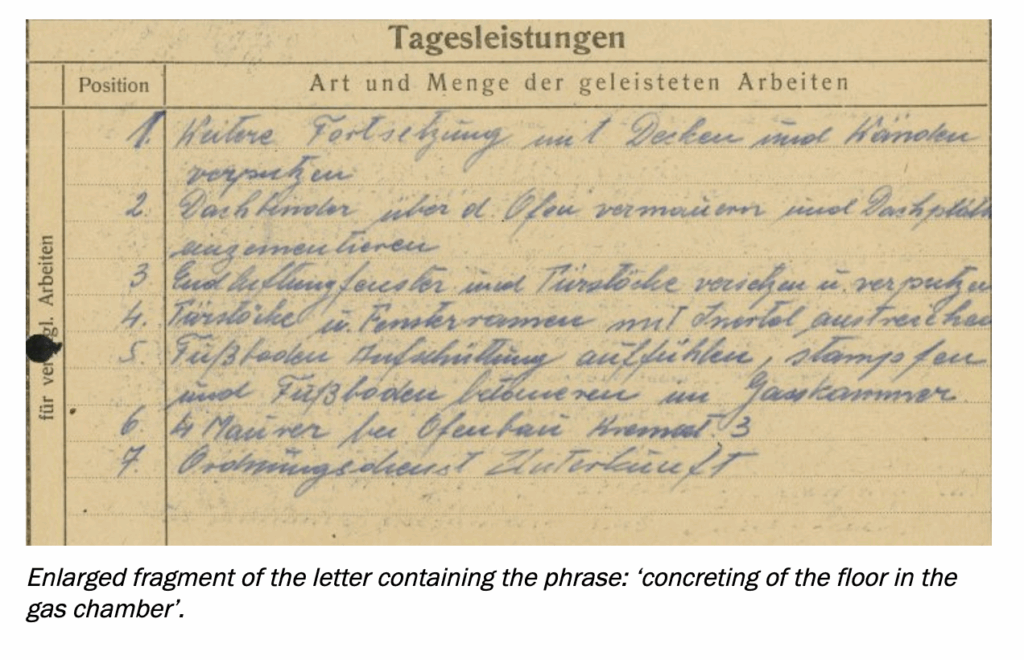 Tagesleistungen
Position
Art und Menge der geleisteten Arbeiten
für vergl. Arbeiten
1. Weitere Fortsetzung mit Decken und Wänden
verputzen
2. Dachbinder über d. Ofen vermauern und Dachplatt
anzementieren
3 Endlüftungfenster und Türstöcke versetzen u. verputzen
4. Türstöcke u. Fensterramen mit Inertol austreichen
5. Fußboden Aufschüttung auffühlen, stampfen
und Fußboden betonieren im Gasskammer
6. 4 Maurer bei Ofenbau 3
7. Ordnungsdienst Unterkunft
Enlarged fragment of the letter containing the phrase: ‘concreting of the floor in the
gas chamber’.